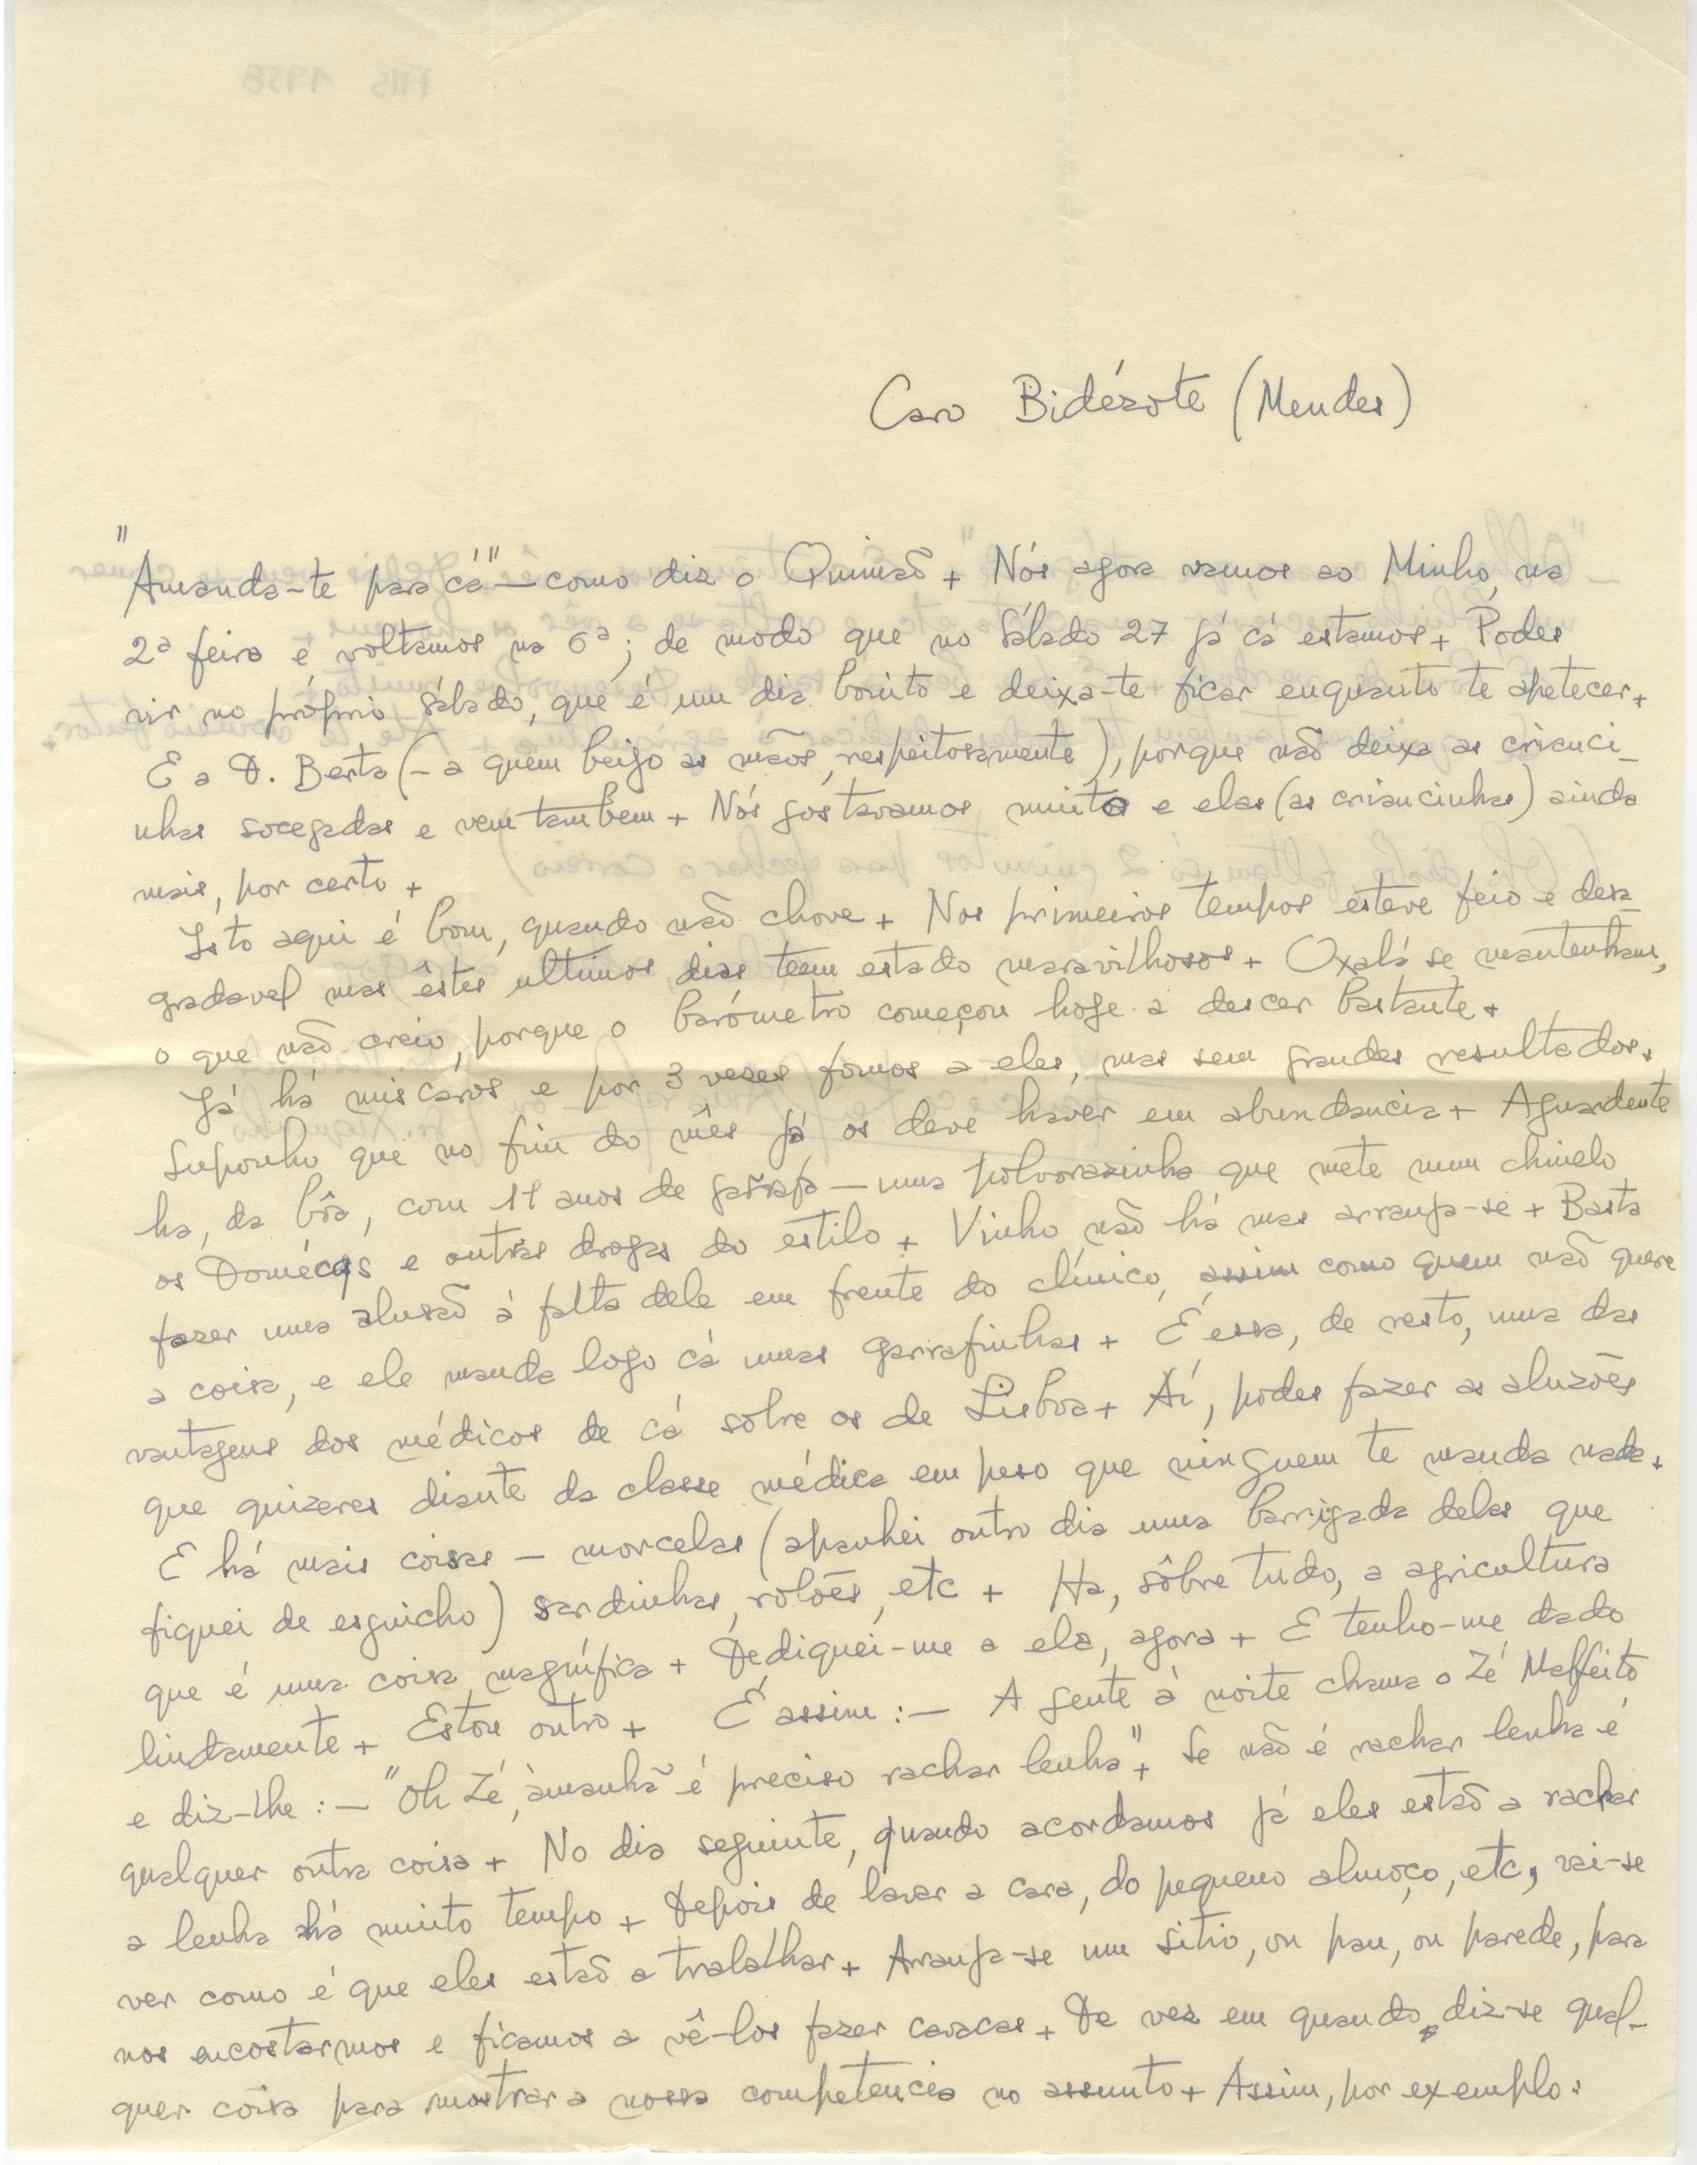 Caro Bidézote (Mendes)
"Amanda-te para cá" — como diz o Quimaõ + Nós agora vamos ao Minho, na
2ª feira e voltamos na 6ª; de modo que no Sábado 27 já cá estamos + Podes
vir no próprio sábado, que é um dia bonito e deixa-te ficar enquanto te apetecer +
E a D. Berta (- a quem beijo as mãos, respeitosamente), porque não deixa as crianci-
nhas socegadas e vem tambem + Nós gostavamos muito e elas (as criancinhas) ainda
mais, por certo +
Isto aqui é bom, quando não chove + Nos primeiros tempos esteve feio e desa-
gradavel mas êstes ultimos dias teem estado maravilhosos + Oxalá se mantenham,
o que não creio, porque o barómetro começou hoje a descer bastante +
Já há miscáros e por 3 vezes fomos a eles, mas sem grandes resultados.
Suponho que no fim do mês já os deve haver em abundancia + Aguardente
ha, da bôa, com 11 anos de garrafa — uma polvorasinha que mete num chinelo
os Domécqs e outras drogas do estilo + Vinho não há mas arranja-se + Basta
fazer uma alusão à falta dele em frente do clínico, assim como quem não quere
a coisa, e ele manda logo cá umas garrafinhas + É essa, de resto, uma das
vantagens dos médicos de cá sobre os de Lisboa + Aí, podes fazer as aluzões
que quizeres diante da classe médica em peso que ninguem te manda nada +
E há mais coisas — morcelas (apanhei outro dia uma barrigada delas que
fiquei de esguicho) sardinhas, rolões, etc + Ha, sôbre tudo, a agricultura
que é uma coisa magnífica + Dediquei-me a ela, agora + E tenho-me dado
lindamente + Estou outro + É assim : — A gente à noite chama o Zé Malfeito
e diz-lhe : — "Oh Zé, àmanhã é preciso rachar lenha" + Se não é rachar lenha é
qualquer outra coisa + No dia seguinte, quando acordamos já eles estaõ a rachar
a lenha há muito tempo + Depois de lavar a cara, do pequeno almoço, etc, vai-se
ver como é que eles estaõ a trabalhar + Arranja-se um sitio, ou pau, ou parede, para
nos encostarmos e ficamos a vê-los fazer cavacas + De vez em quando, diz-se qual-
quer coisa para mostrar a nossa competencia no assunto + Assim, por exemplo :